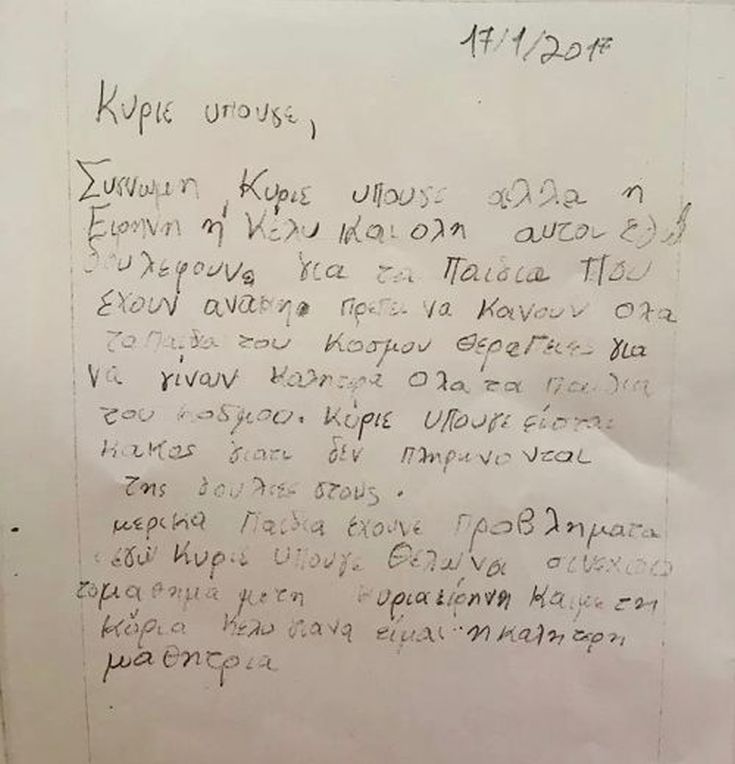 17/1/2017
Κυριε υπουγε,
Συγνωμη Κυριε υπουγε αλλα η
Ειρηνη η Κέλυ και ολη αυτοι εδώ
δουλεφουνε για τα παιδια που
έχουν αναπηρ πρεπει να κανουν ολα
τα παιδια του κοσμου θεραπειες για
να γίνουν καλητρα ολα τα παιδια
του κοσμου. Κύριε υπουγε είσται
κακος γιατι δεν πληρωνονται
της δουλιες στους.
μερικα παιδια έχουνε προβλήματα
εγω Κυριε υπουγε θελω να συνεχισω
το μαθημα με τη κυρια ειρηνη και με τη
Κύρια Κελυ για να είμαι η καλητερη
μαθητρια